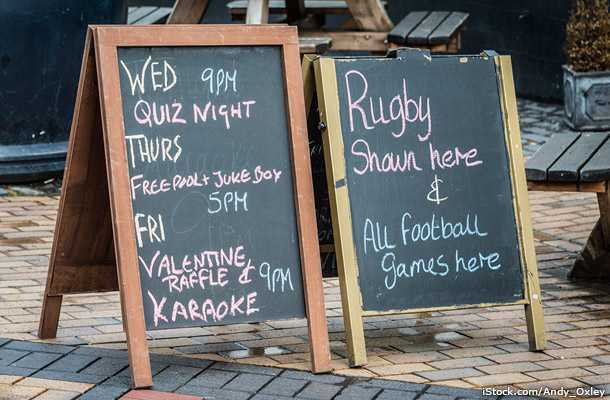 WED 9PM
QUIZ NIGHT
THURS
FREE POOL + JUKE BOX
5PM
FRI
VALENTINE
RAFFLE & 9PM
KARAOKE
Rugby
Shown here
&
All Football
Games here
iStock.com/Andy_Oxley